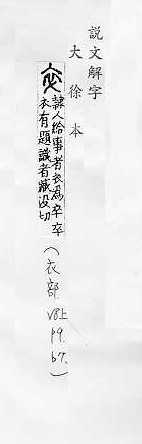 説文解字
大徐本
隸人給事者衣爲卒卒
衣有題識者臧没切
(衣部 V8上 p9. b7.)